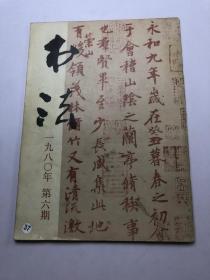 书法
一九八〇年 第六期
永和九年歲在癸丑暮春之初會
于會稽山陰之蘭亭脩稧事
也羣賢畢至少長咸集此地
有崇山峻領茂林脩竹又有清流激
37